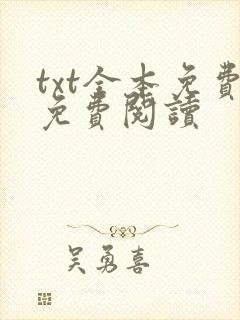 txt全本免費
免費閱讀
吴勇喜